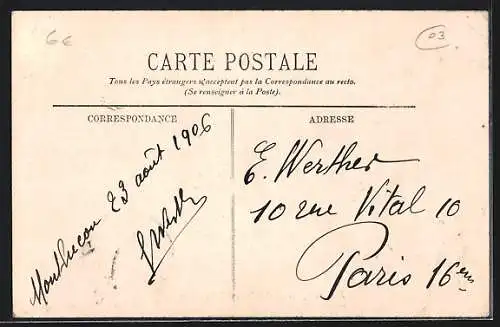 6€
03
CARTE POSTALE
Tous les Pays étrangers n'acceptent pas la Correspondance au recto.
(Se renseigner à la Poste).
CORRESPONDANCE
Montluçon 23 août 1906
ADRESSE
E. Werther
10 rue Vital 10
Paris 16em